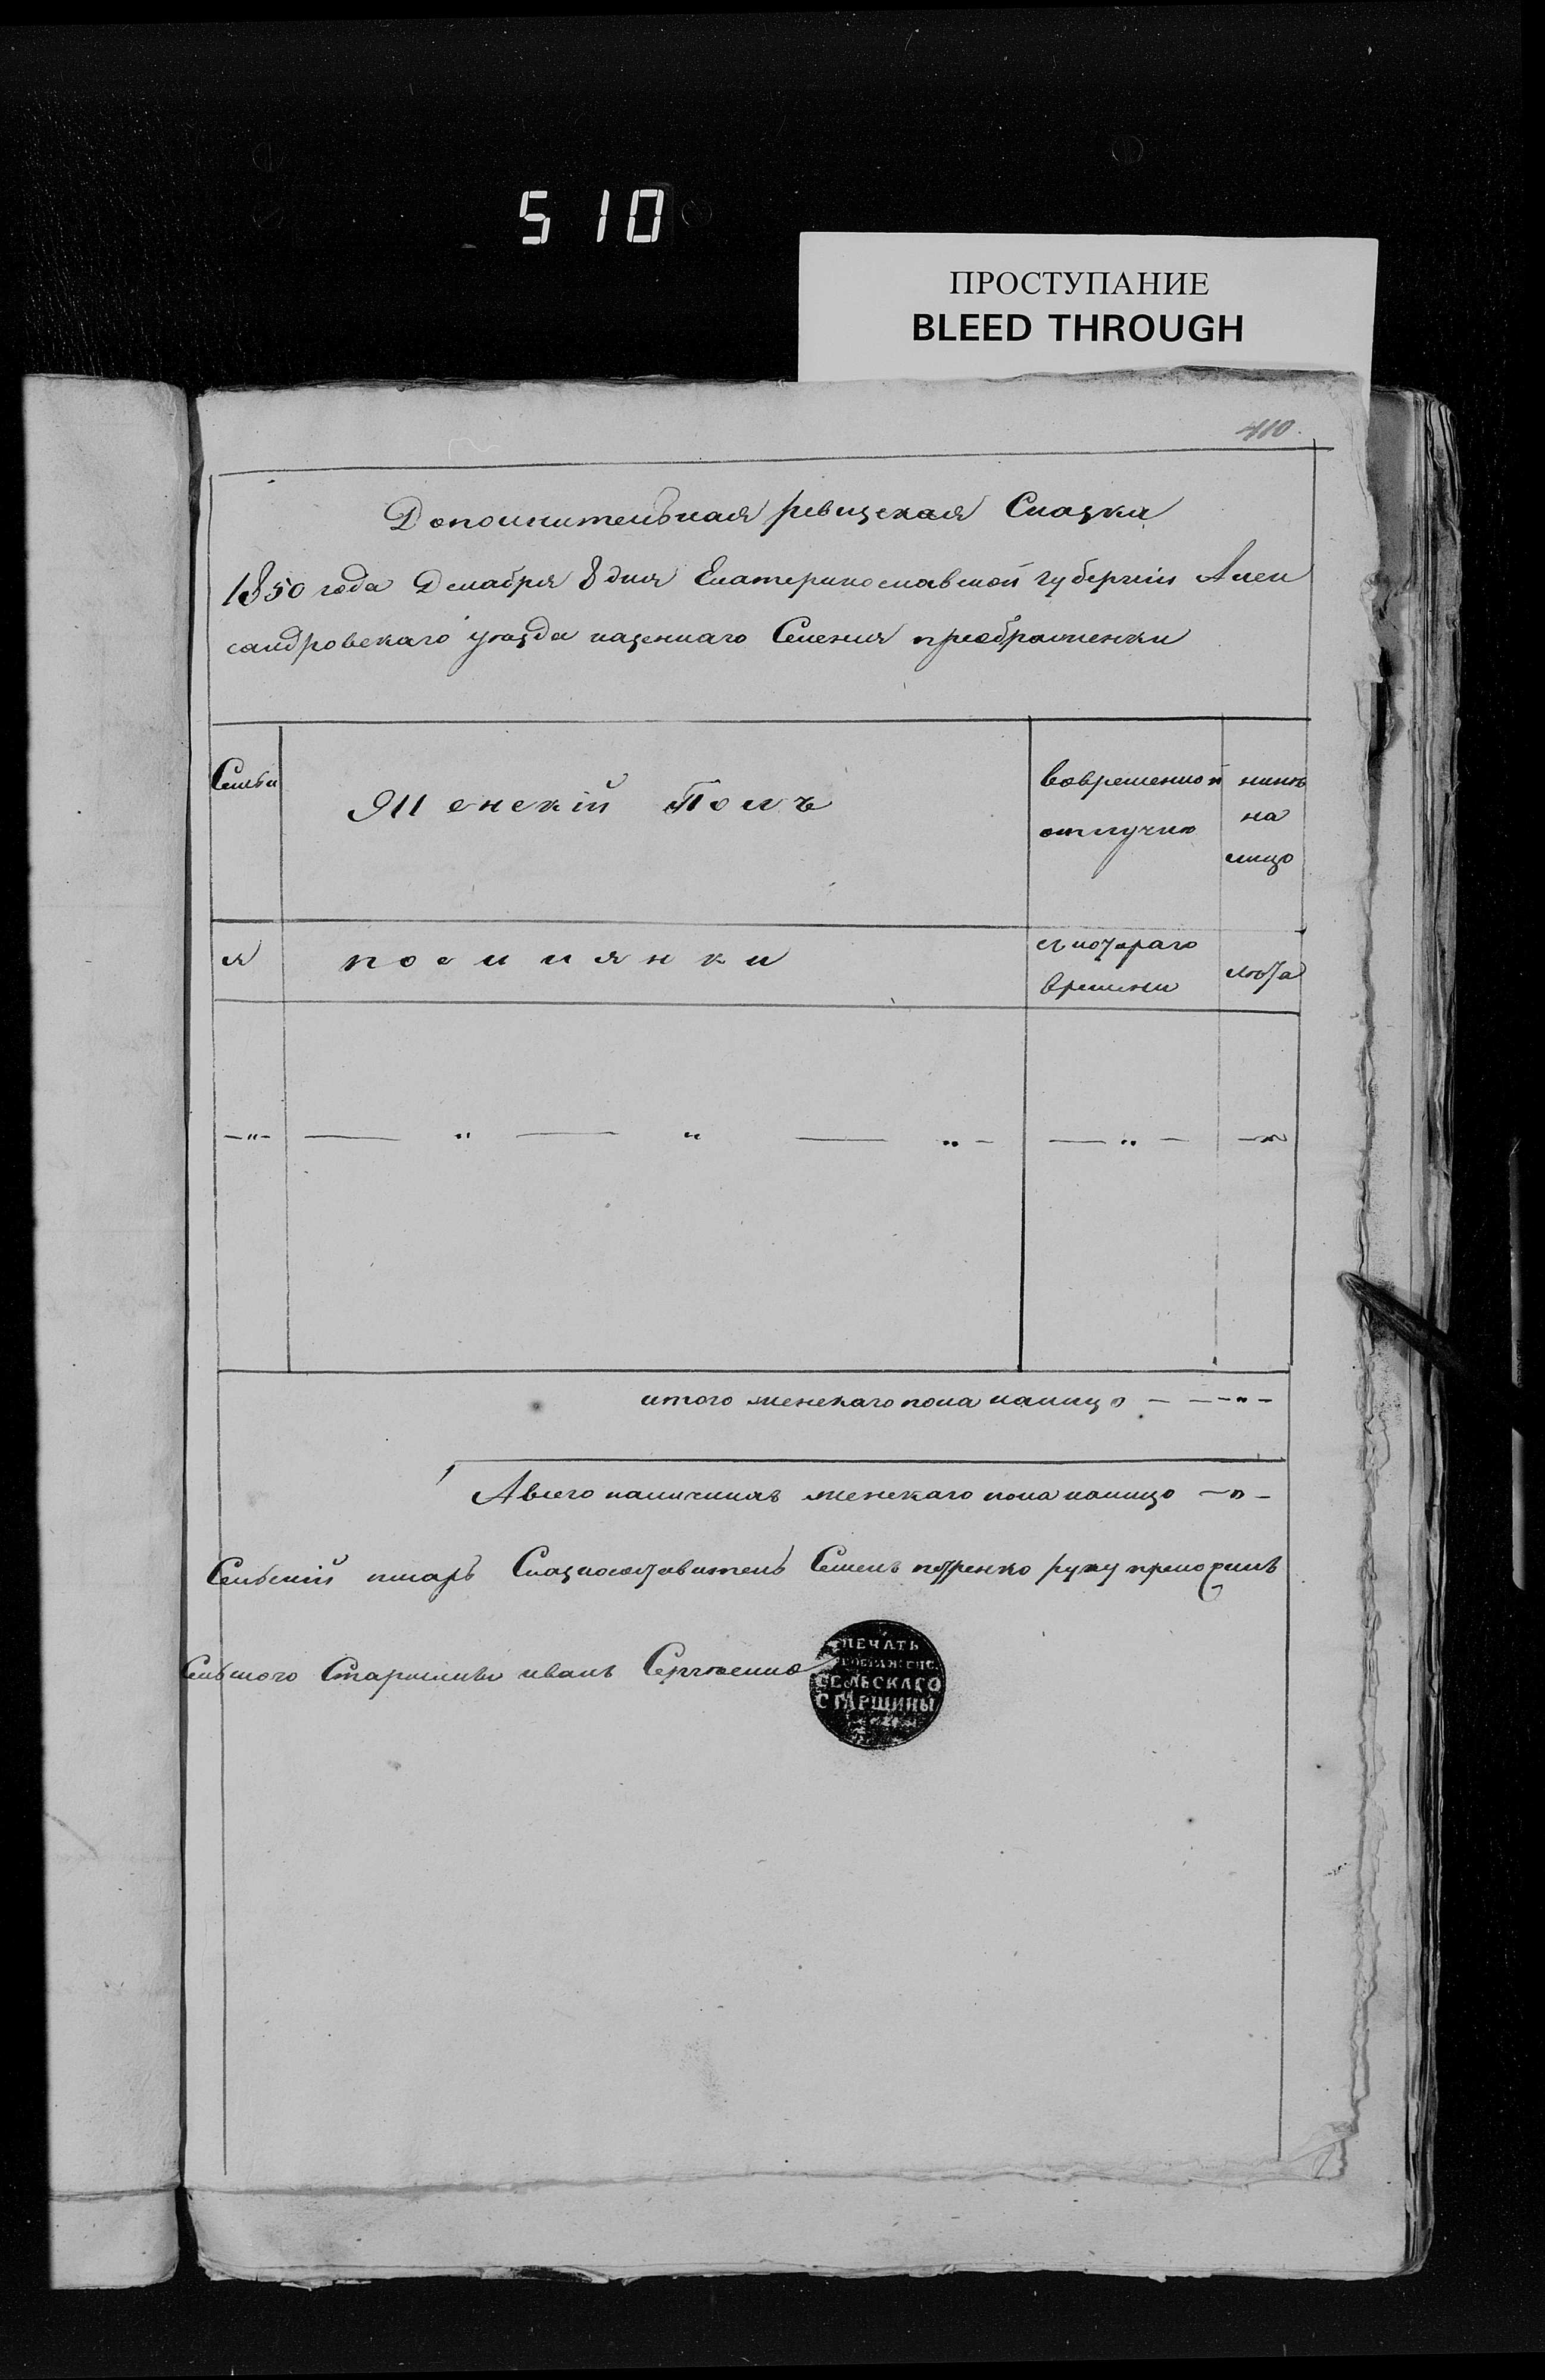 510
ПРОСТУПАНИЕ
BLEED THROUGH
410.
Дополнительная ревизская Сказка
1850 года Декабря 8 дня Екатеринославской губернiи Алек
сандровскаго уѣзда казеннаго Селенiя преображенки
Семьи
Женскiй Полъ
вовременной
отлучки
нинѣ
на
лицо
я
посилянки
съ котораго
времени
лѣта
итого женскаго пола налицо — — " —
А всего наличныхъ женскаго пола налицо — " —
Сельскiй писарь Сказкосоставитель Семенъ петренко руку приложилъ
Сельского Старшины иванъ Сергѣенко
ПЕЧАТЬ
СЕЛЬСКАГО
СТАРШИНЫ